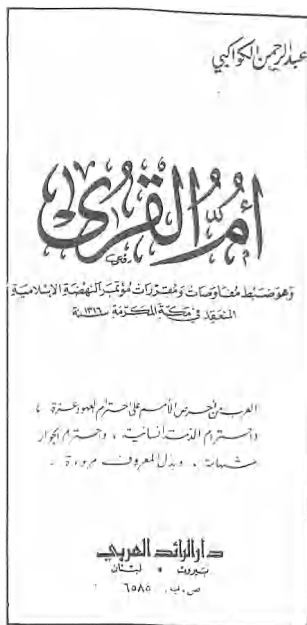 عبد الرحمن الكواكبي
أم القرى
وهو ضبط مفاوضات ومقررات مؤتمر النهضة الإسلامية
المنعقد في مكة المكرمة سنة ١٣١٦
العرب من أحرص الأمم على احترام العهود عزة ،
واحترام الذمة إنسانية ، واحترام الجوار
شهامة ، وبذل المعروف مروءة .
دار الرائد العربي
بيروت • لبنان
ص.ب. ٦٥٨٥